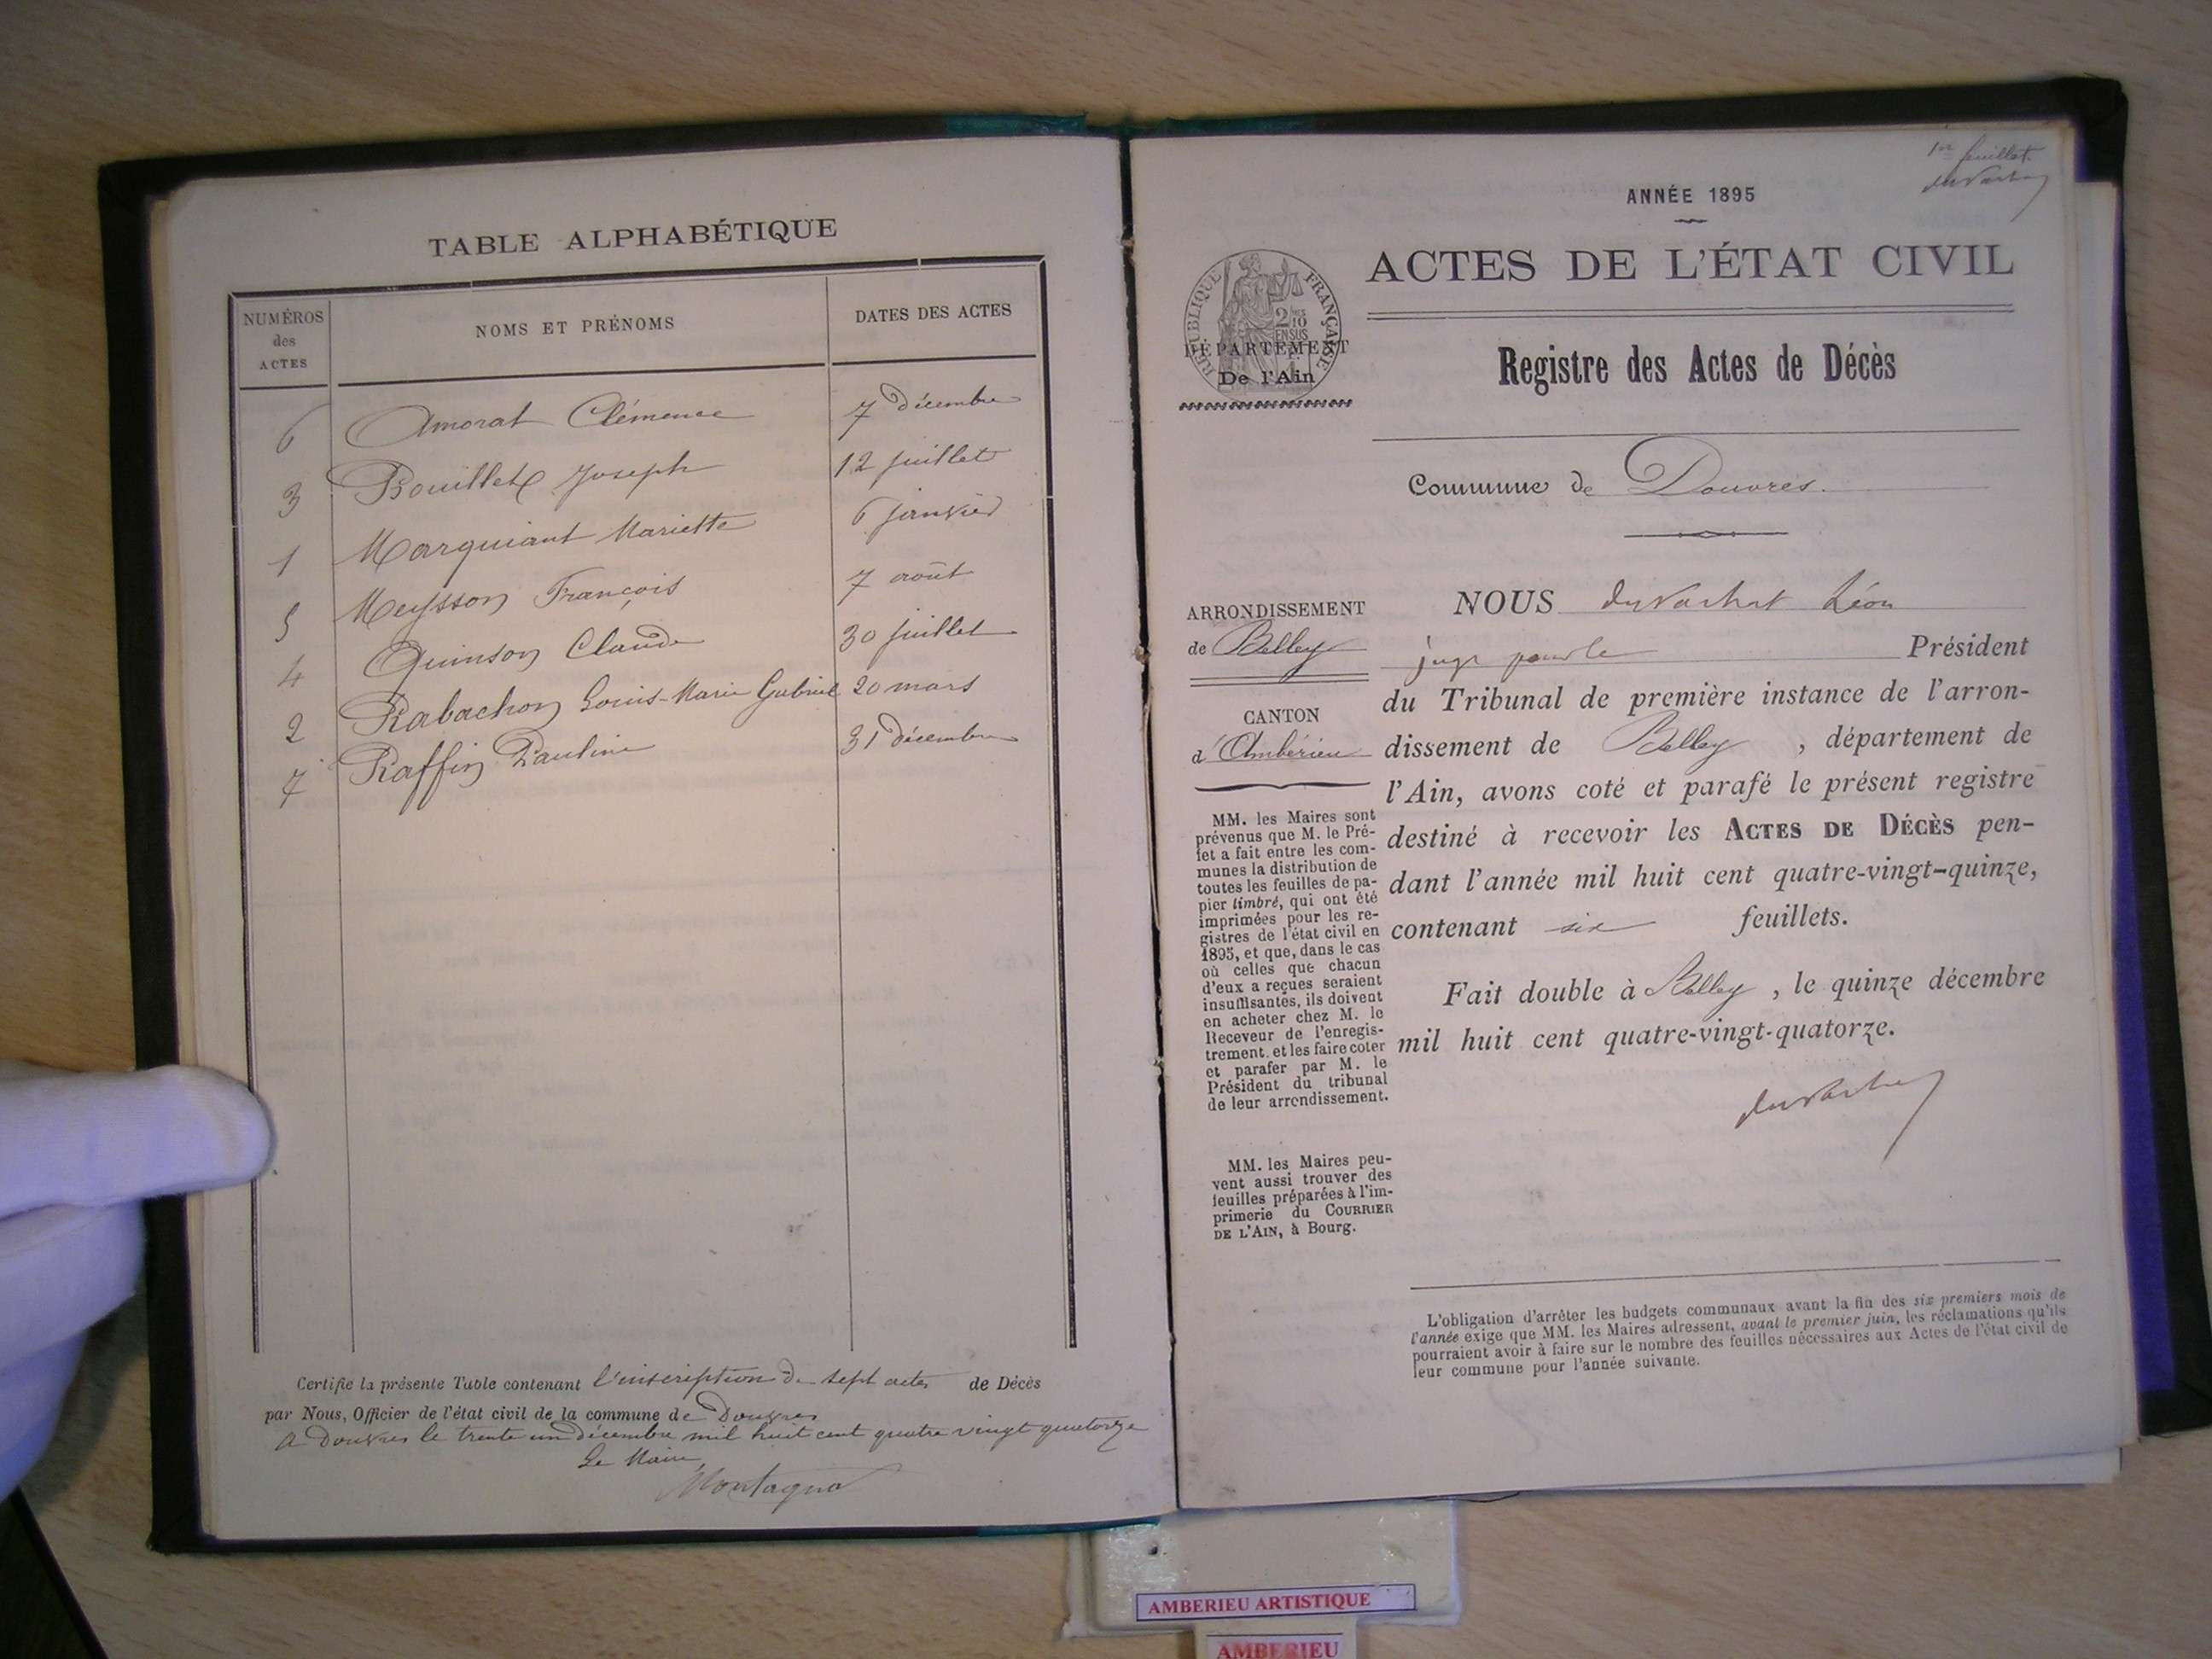 TABLE ALPHABÉTIQUE
NUMÉROS des ACTES
NOMS ET PRÉNOMS
DATES DES ACTES
6 Amorat Clémence 7 décembre
3 Bouillet Joseph 12 juillet
1 Marquiant Mariette 6 janvier
5 Meysson François 7 août
4 Quinson Claude 30 juillet
2 Rabachon Louis-Marie Gabriel 20 mars
7 Raffin Pauline 31 décembre
Certifié la présente Table contenant l'inscription de sept actes de Décès
par Nous, Officier de l'état civil de la commune de Douvres
A Douvres le trente un décembre mil huit cent quatre vingt quatorze
Le Maire,
Montagnat
1er feuillet.
ANNÉE 1895
ACTES DE L'ÉTAT CIVIL
RÉPUBLIQUE FRANÇAISE
2/10 EN SUS
DÉPARTEMENT
De l'Ain
Registre des Actes de Décès
Commune de Douvres.
ARRONDISSEMENT
de Belley
CANTON
d'Ambérieu
MM. les Maires sont
prévenus que M. le Pré-
fet a fait entre les com-
munes la distribution de
toutes les feuilles de pa-
pier timbré, qui ont été
imprimées pour les re-
gistres de l'état civil en
1895, et que, dans le cas
où celles que chacun
d'eux a reçues seraient
insuffisantes, ils doivent
en acheter chez M. le
Receveur de l'enregis-
trement, et les faire coter
et parafer par M. le
Président du tribunal
de leur arrondissement.
MM. les Maires peu-
vent aussi trouver des
feuilles préparées à l'im-
primerie du COURRIER
DE L'AIN, à Bourg.
NOUS Duvachat Léon
juge pour le Président
du Tribunal de première instance de l'arron-
dissement de Belley, département de
l'Ain, avons coté et parafé le présent registre
destiné à recevoir les ACTES DE DÉCÈS pen-
dant l'année mil huit cent quatre-vingt-quinze,
contenant six feuillets.
Fait double à Belley, le quinze décembre
mil huit cent quatre-vingt-quatorze.
L'obligation d'arrêter les budgets communaux avant la fin des six premiers mois de
l'année exige que MM. les Maires adressent, avant le premier juin, les réclamations qu'ils
pourraient avoir à faire sur le nombre des feuilles nécessaires aux Actes de l'état civil de
leur commune pour l'année suivante.
AMBERIEU ARTISTIQUE
AMBERIEU